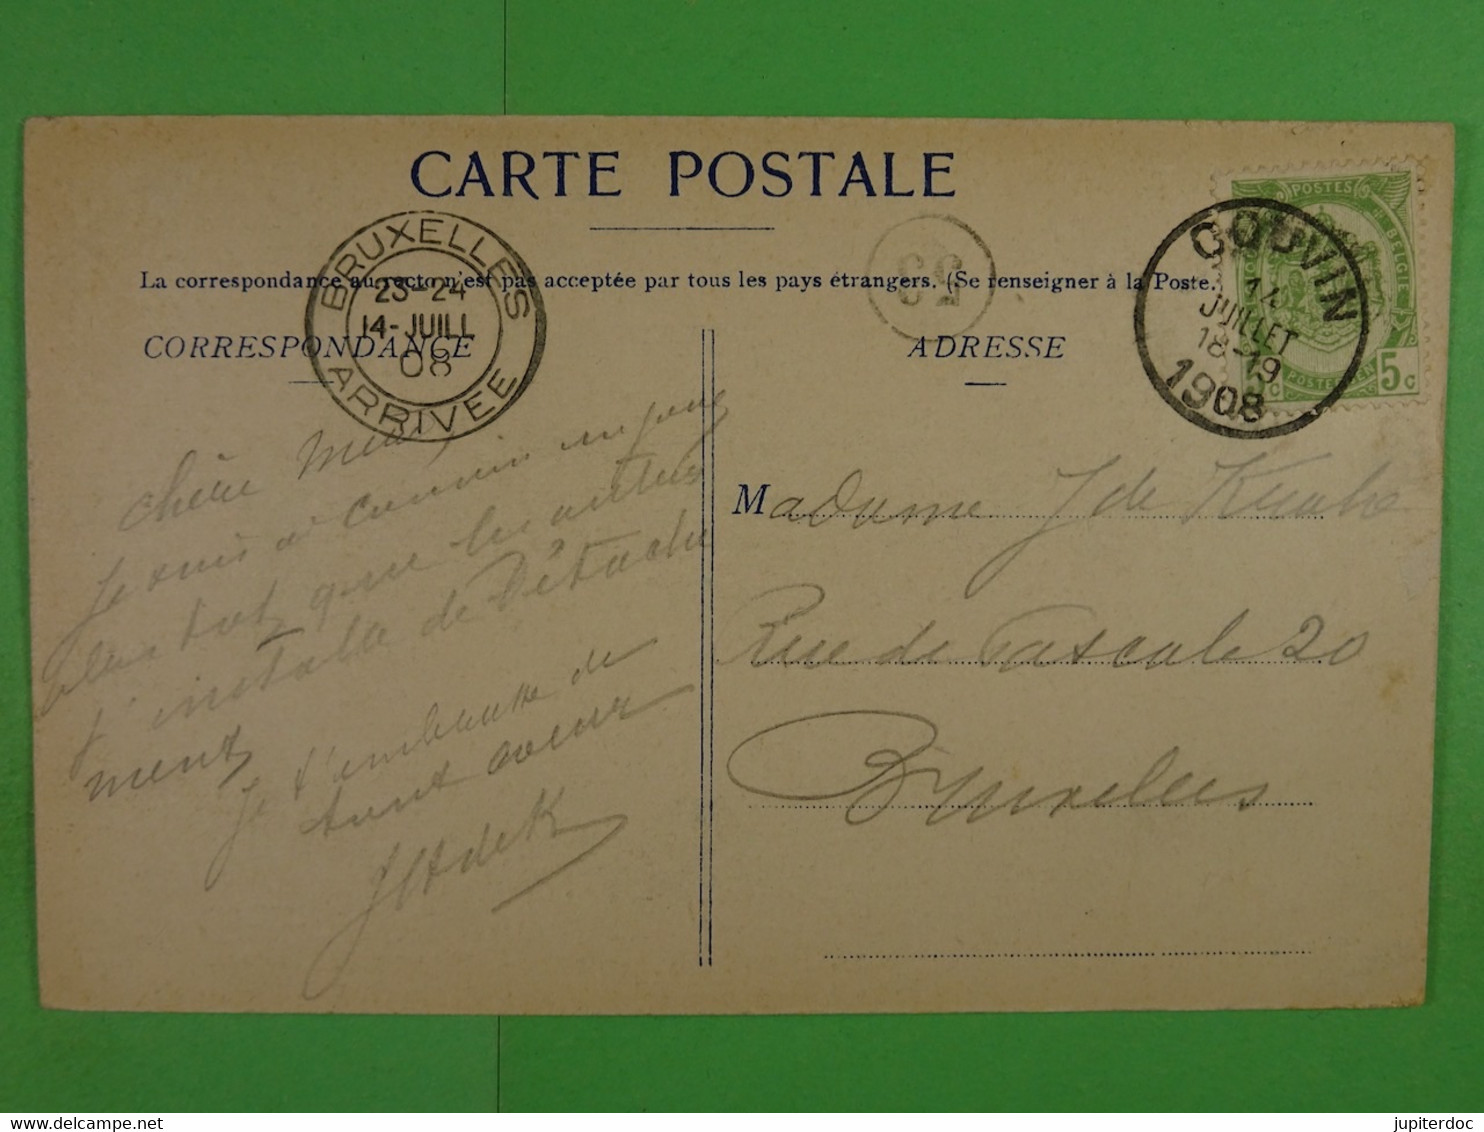 CARTE POSTALE
La correspondance au recto n'est pas acceptée par tous les pays étrangers. (Se renseigner à la Poste.)
CORRESPONDANCE
ADRESSE
BRUXELLES
23-24
14-JUILL
08
ARRIVEE
33
COUVIN
14
JUILLET
18-19
1908
POSTES
BELGIE
5 c
chère
Je suis à couvin
plus tot que les autres
j'installe de Détache
ment
Je t'embrasse de
tout coeur
Madame J de
Rue de Pascale 20
Bruxelles
delcampe.net
jupiterdoc